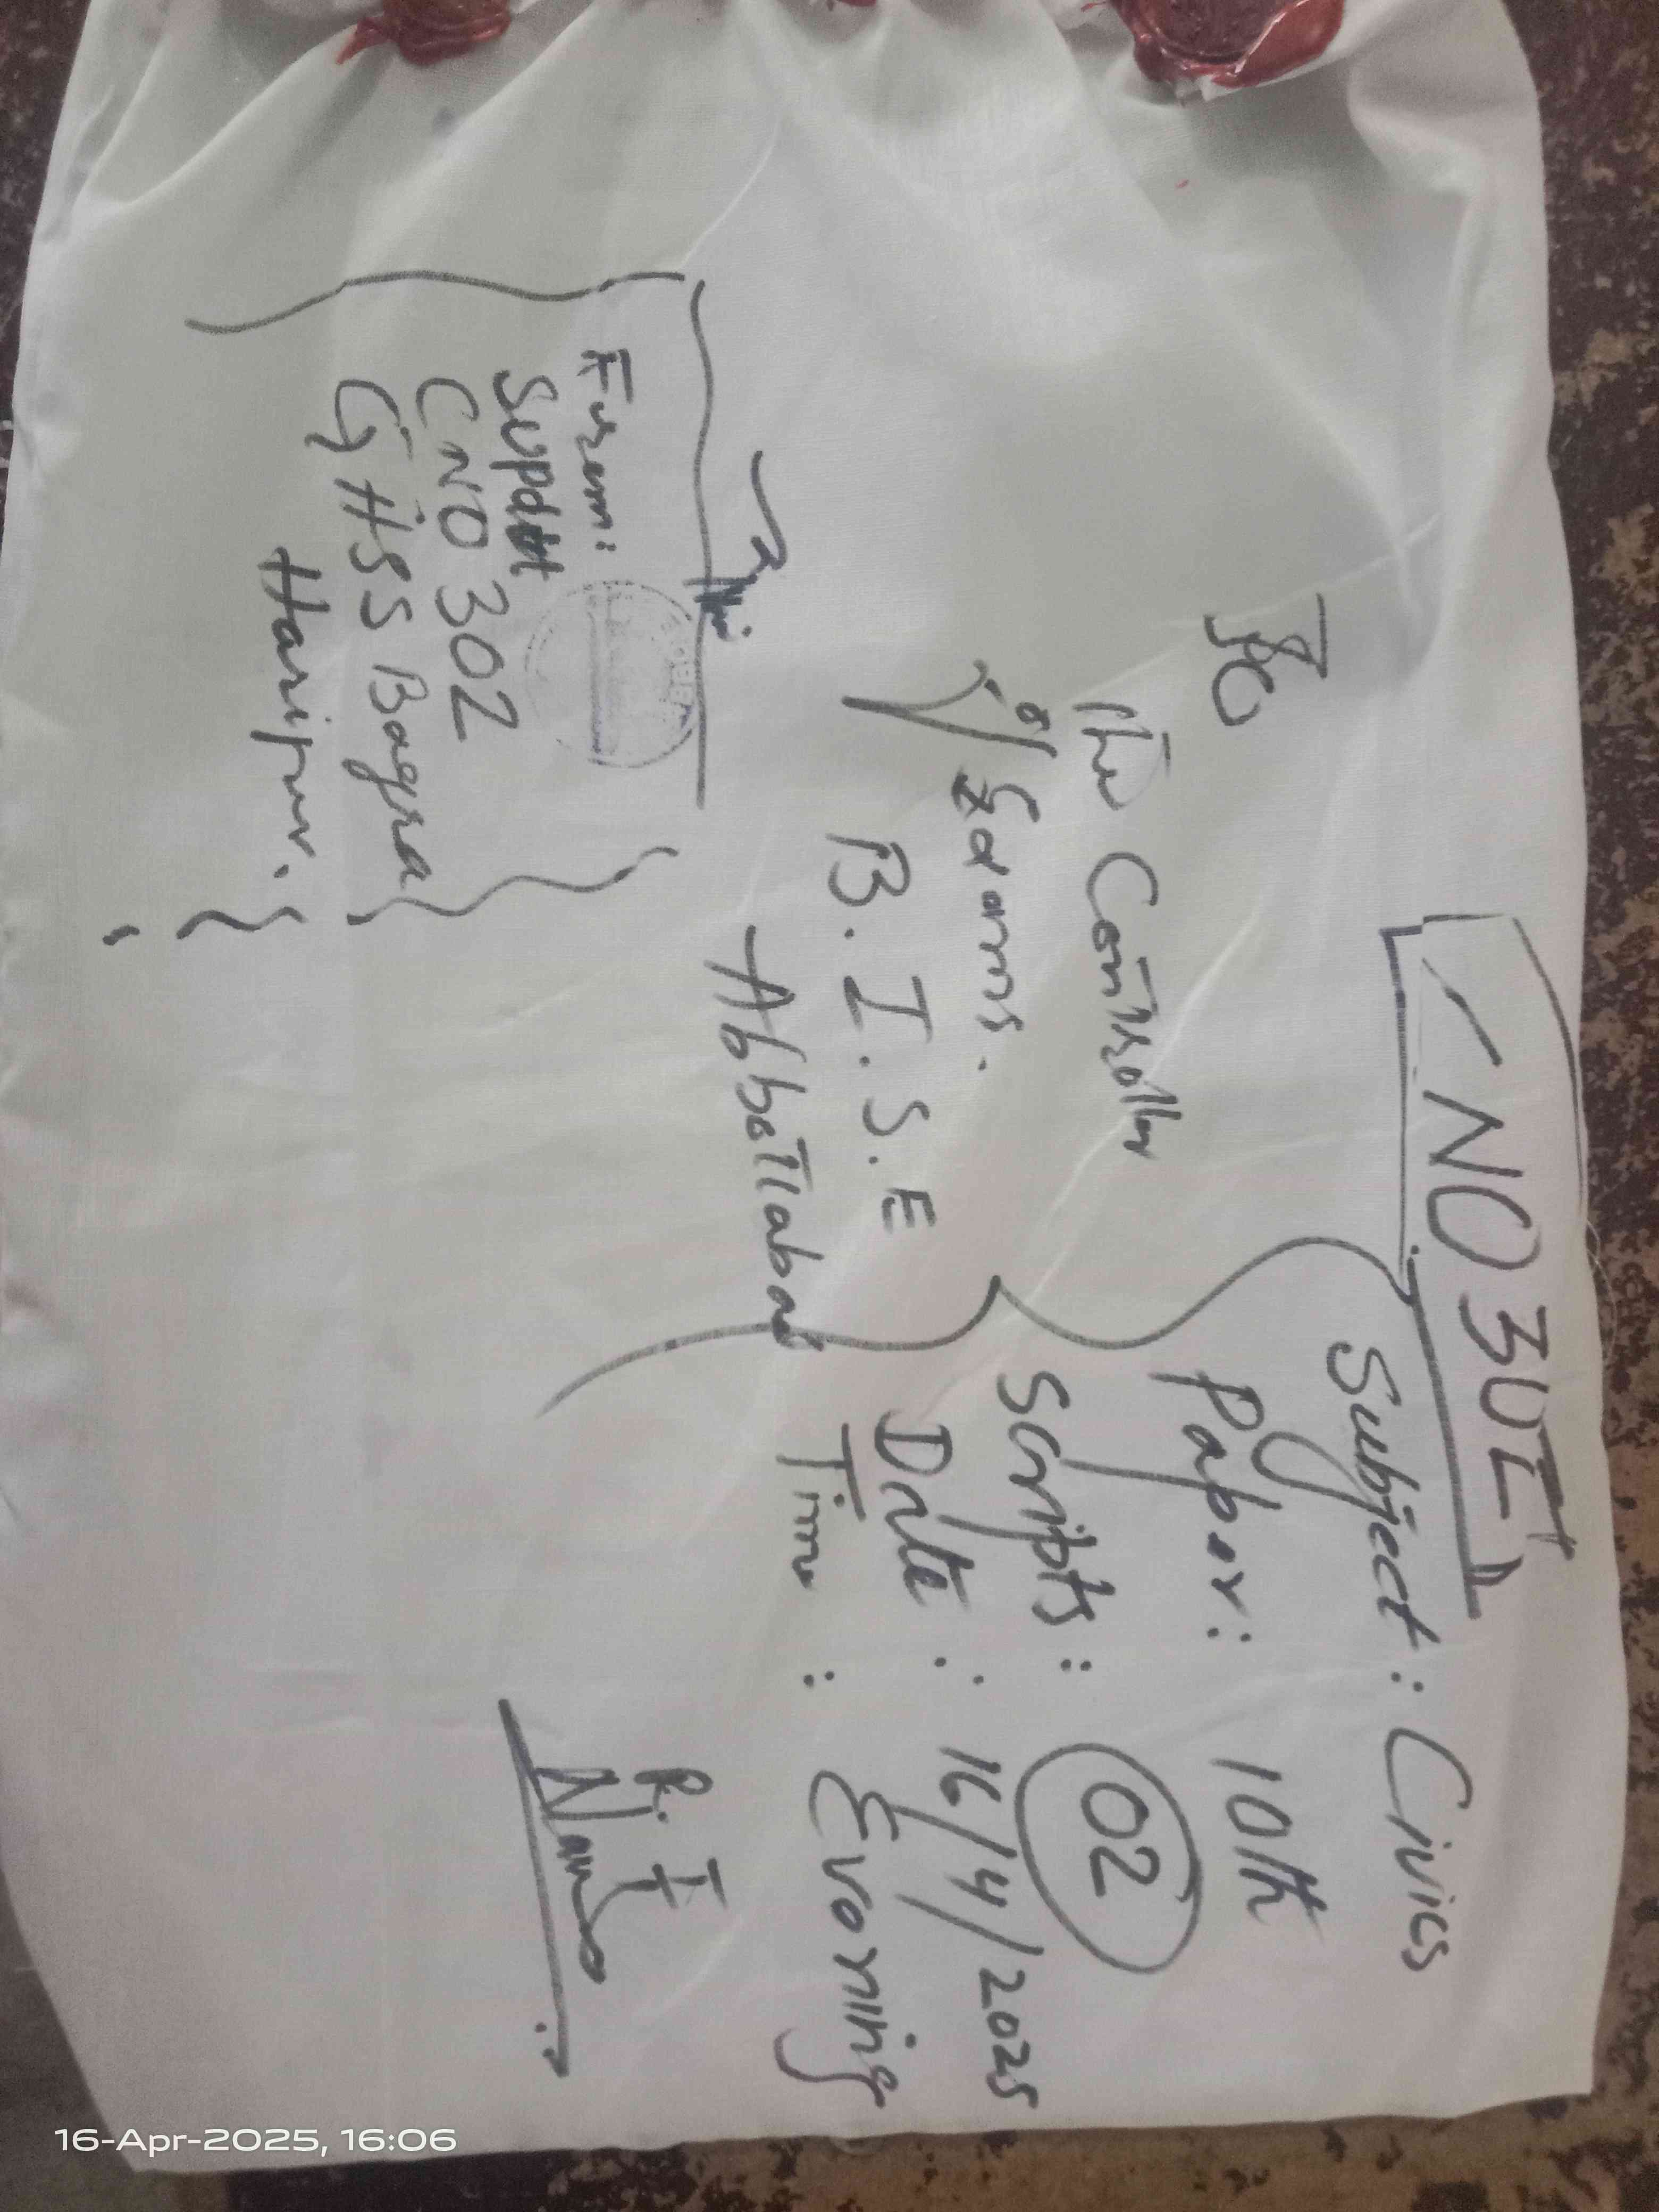 C NO 302
To
The Controller
of Exams.
B.I.S.E
Abbottabad
Subject : Civics
Paper : 10th
Scripts : 02
Date : 16/4/2025
Time : Evening
R. I
From:
Supdtt
C.NO 302
GHSS Bagra
Haripur.
16-Apr-2025, 16:06